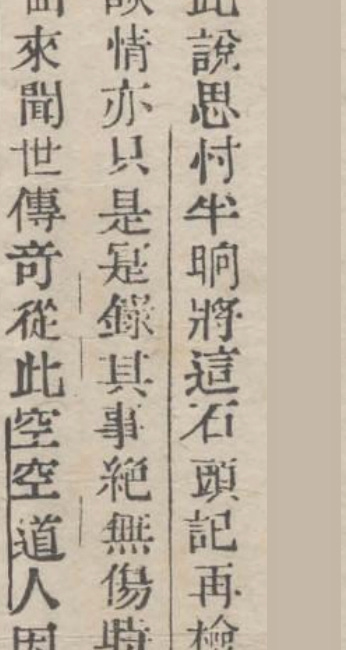 此說思忖半晌將這石頭記再檢
談情亦只是寔錄其事絕無傷時
來聞世傳奇從此空空道人因